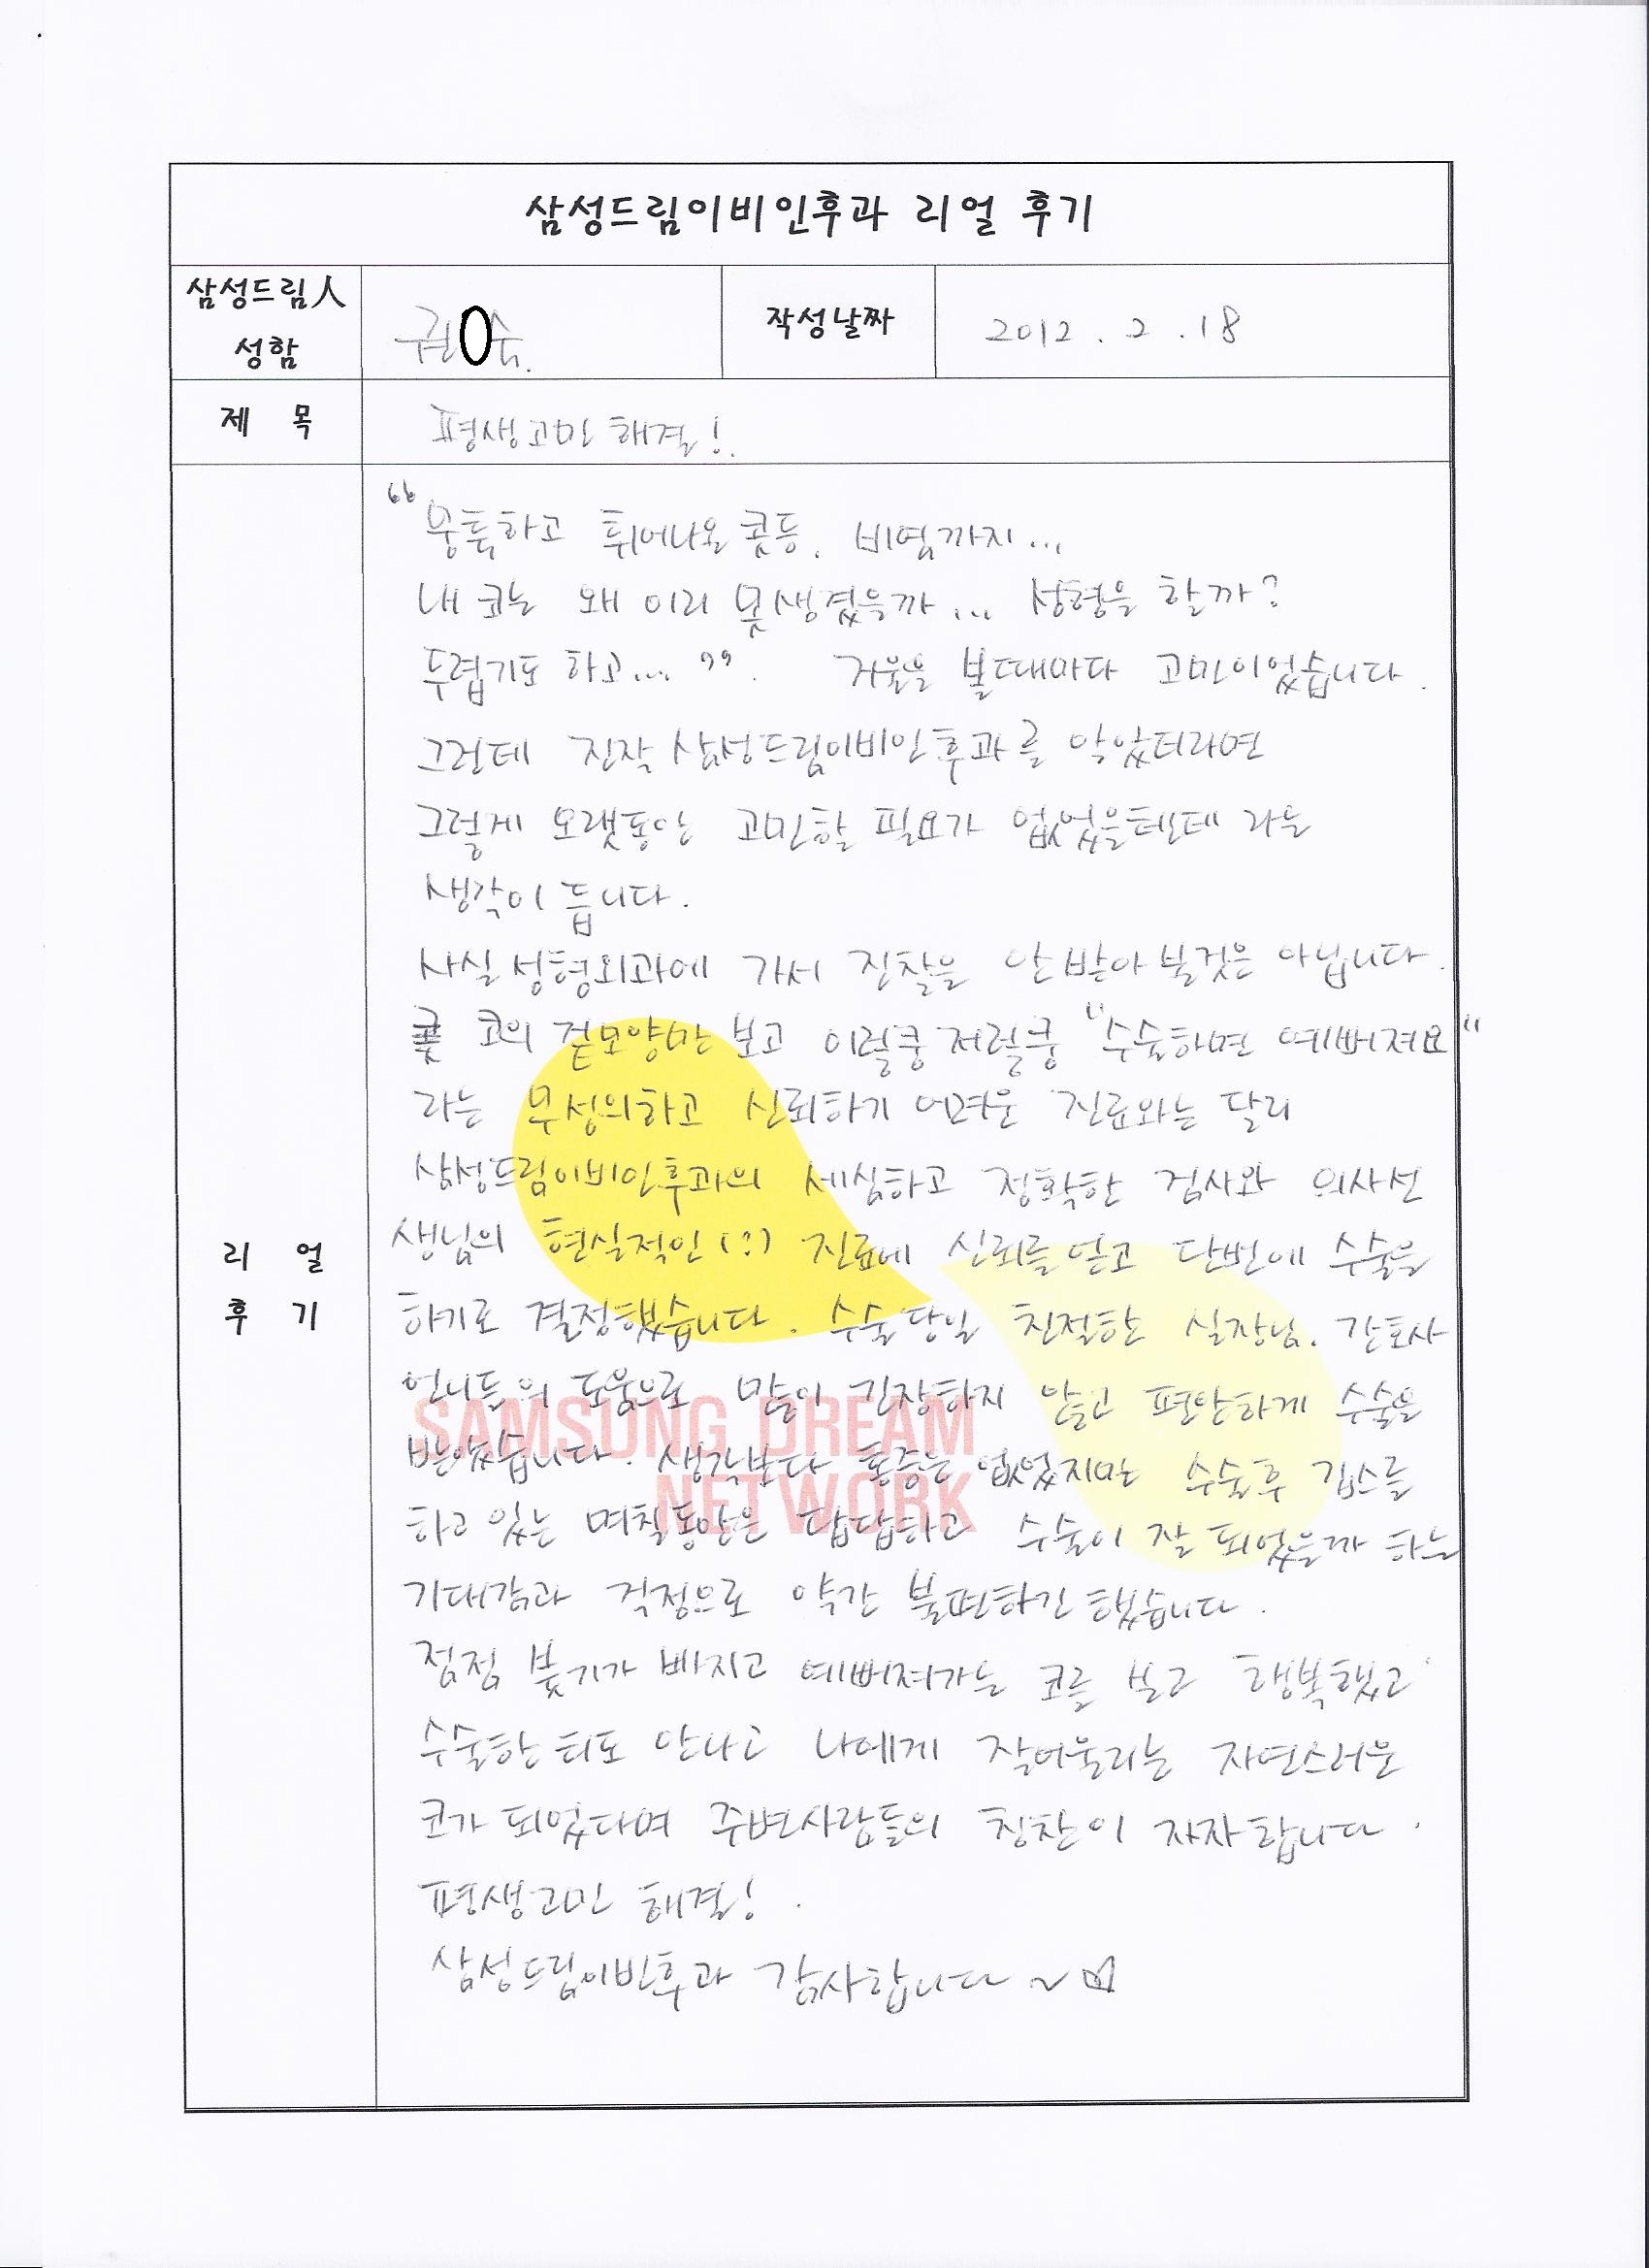 삼성드림이비인후과 리얼 후기
삼성드림人
성함
권 숙.
작성날짜
2012. 2. 18
제 목
평생고민 해결!
"뭉툭하고 튀어나온 콧등. 비염까지...
내 코는 왜 이리 못생겼을까... 성형을 할까?
두렵기도 하고...". 거울을 볼때마다 고민이었습니다.
그런데 진작 삼성드림이비인후과를 알았더라면
그렇게 오랫동안 고민할 필요가 없었을텐데 라는
생각이 듭니다.
사실 성형외과에 가서 진찰을 안받아본것은 아닙니다.
코의 겉모양만 보고 이럴쿵 저럴쿵 "수술하면 예뻐져요"
라는 무성의하고 신뢰하기 어려운 진료와는 달리
삼성드림이비인후과의 세심하고 정확한 검사와 의사선
생님의 현실적인(?) 진료에 신뢰를 얻고 단번에 수술을
하기로 결정했습니다. 수술당일 친절한 실장님. 간호사
언니들의 도움으로 많이 긴장하지 않고 편안하게 수술을
받았습니다. 생각보다 통증은 없었지만 수술후 깁스를
하고 있는 며칠동안은 답답하고 수술이 잘 되었을까 하는
기대감과 걱정으로 약간 불편하긴 했습니다.
점점 붓기가 빠지고 예뻐져가는 코를 보고 행복했고
수술한 티도 안나고 나에게 잘어울리는 자연스러운
코가 되었다며 주변사람들의 칭찬이 자자합니다.
평생고민 해결!.
삼성드림이빈후과 감사합니다~
리 얼
후 기
SAMSUNG DREAM
NETWORK